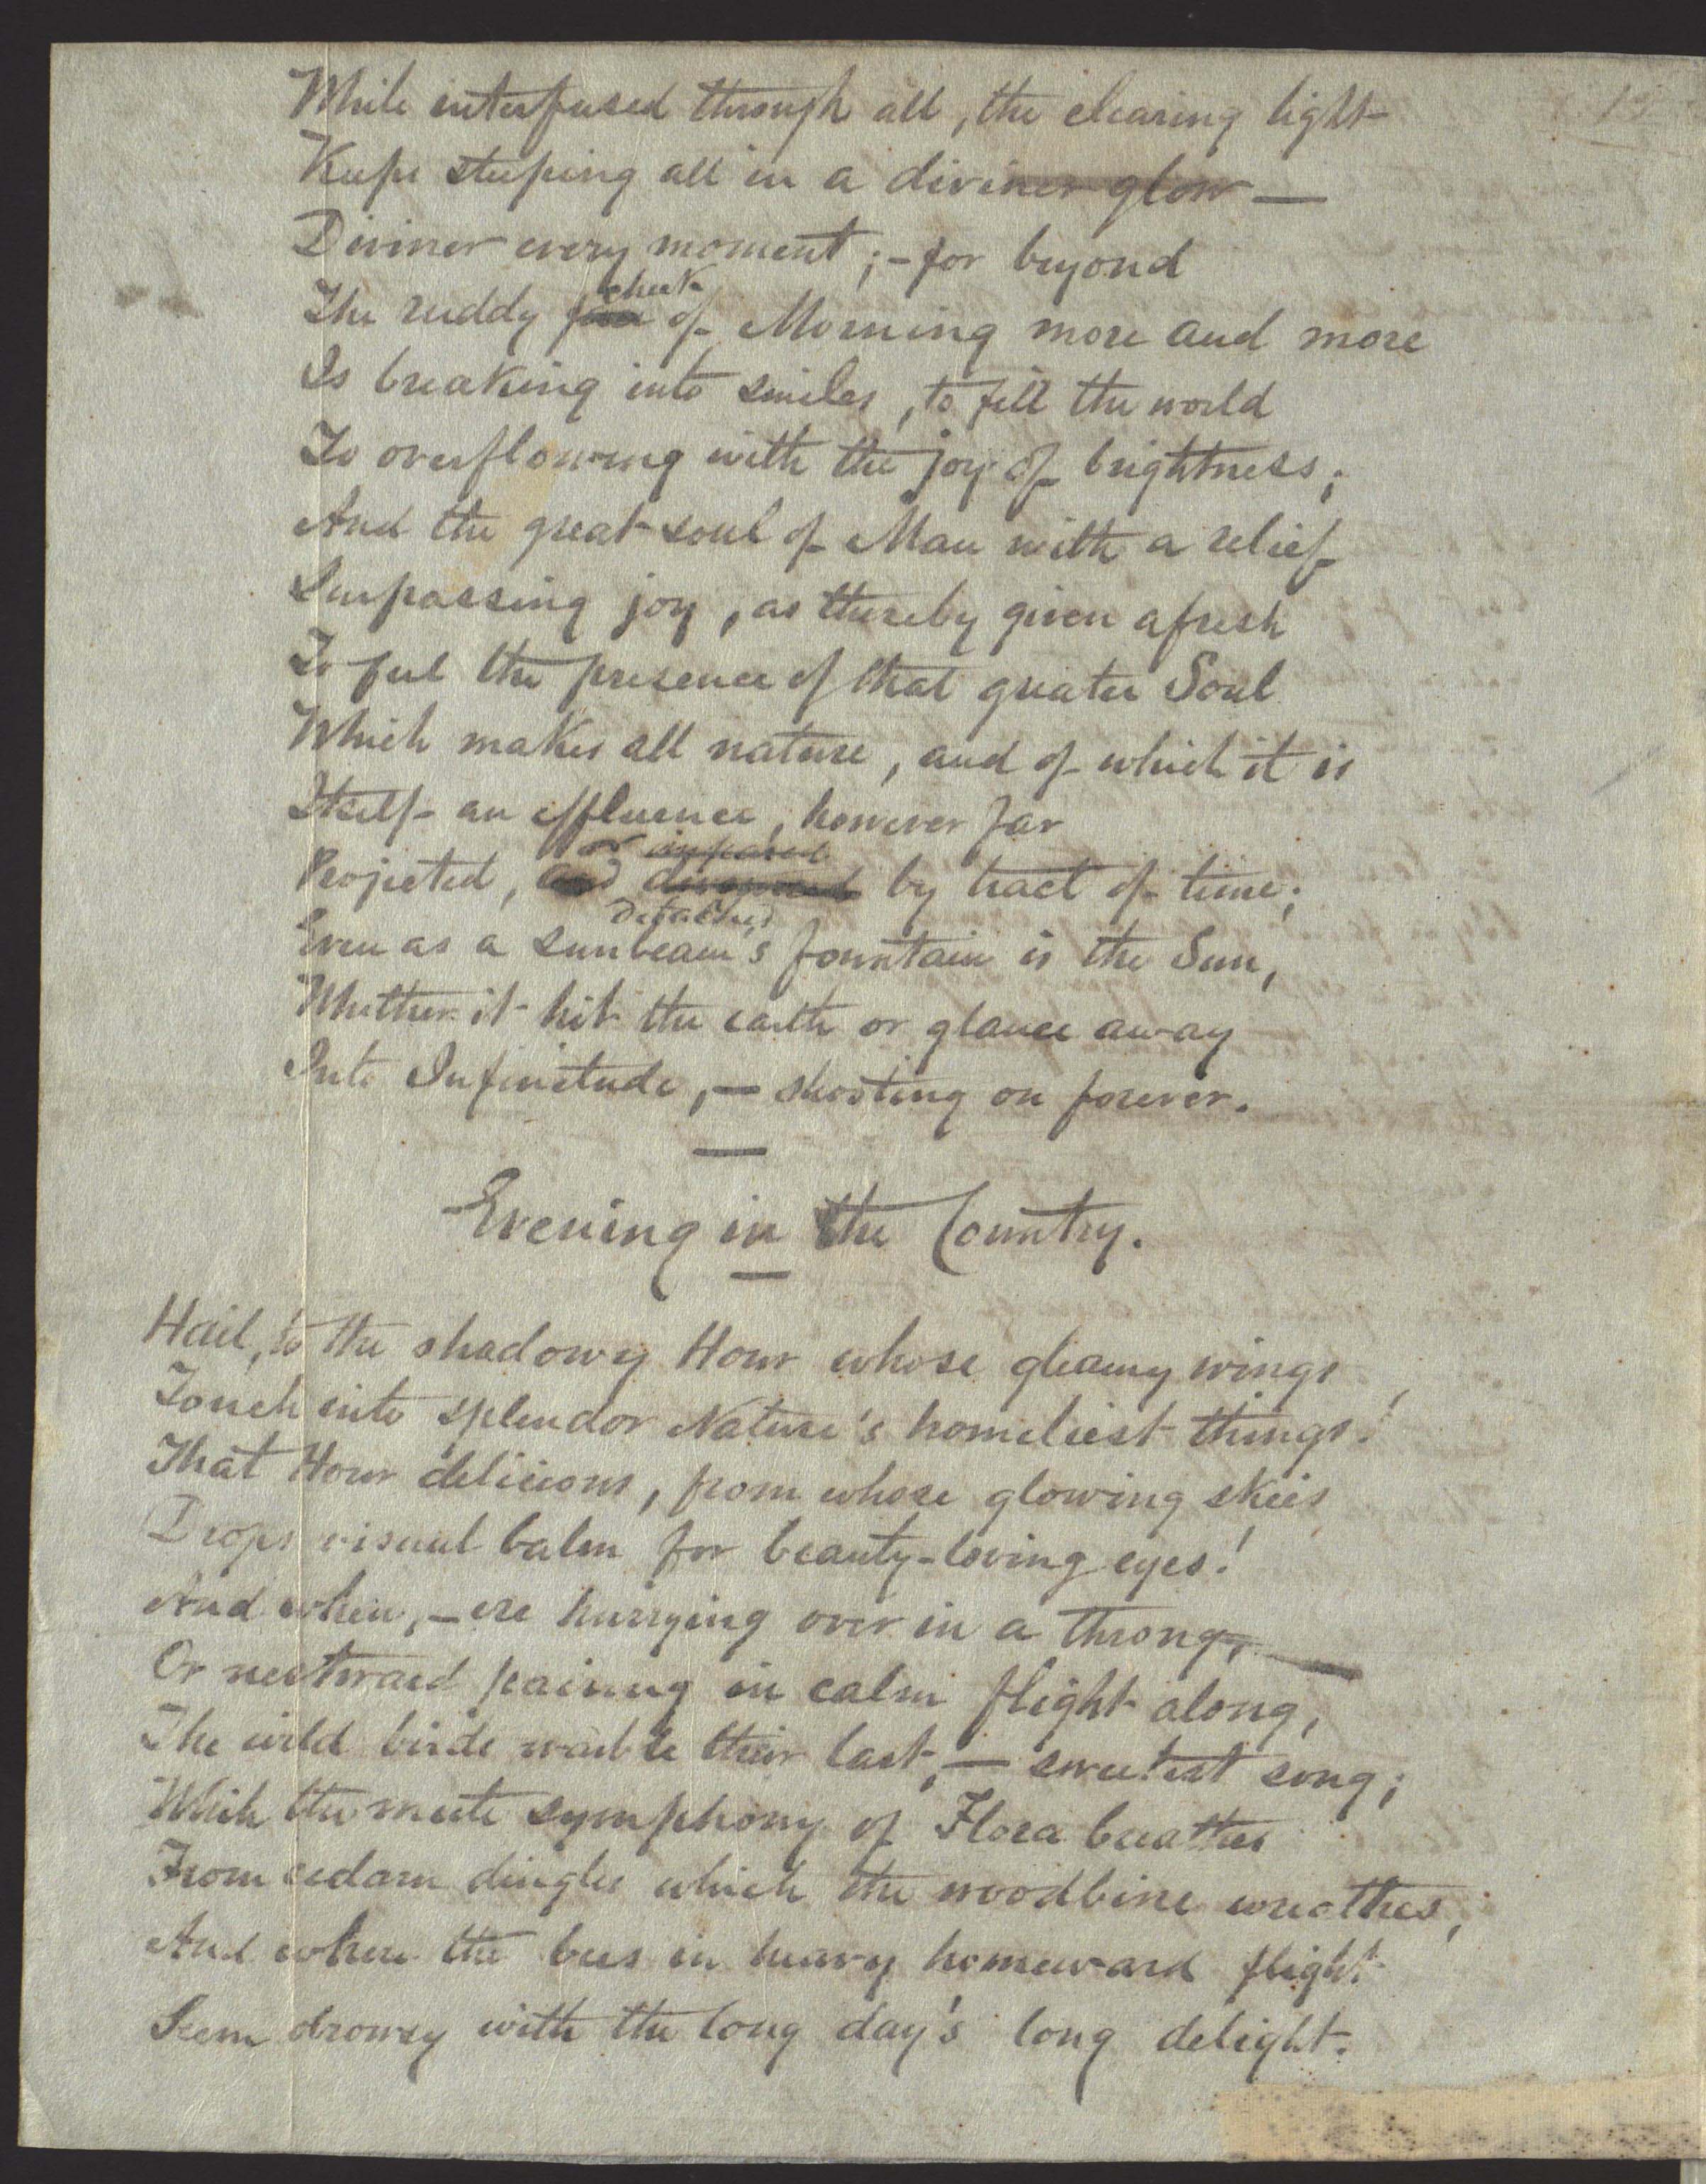 While interfused through all, the clearing light
Keeps steeping all in a diviner glow —
Diviner every moment; – for beyond
cheek
The ruddy face of Morning more and more
Is breaking into smiles, to fill the world
To overflowing with the joy of brightness;
And the great soul of Man with a relief
Surpassing joy, as thereby given afresh
To feel the presence of that greater Soul
Which makes all nature, and of which it is
Itself an effluence, however far
or
Projected, and by tract of time;
Detached
Even as a sunbeam's fountain is the Sun,
Whether it hit the earth or glance away
Into Infinitude, — shooting on forever.
Evening in the Country.
Hail, to the shadowy Hour whose gleamy wings
Touch into splendor Nature's homeliest things!
That Hour delicious, from whose glowing skies
Drops visual balm for beauty-loving eyes!
And when, – ere hurrying over in a throng,
Or nestward pairing in calm flight along,
The wild birds warble their last, — sweetest song;
While the mute symphony of Flora breathes
From cedarn dingles which the woodbine wreathes,
And where the bees in heavy homeward flight
Seem drowsy with the long day's long delight.